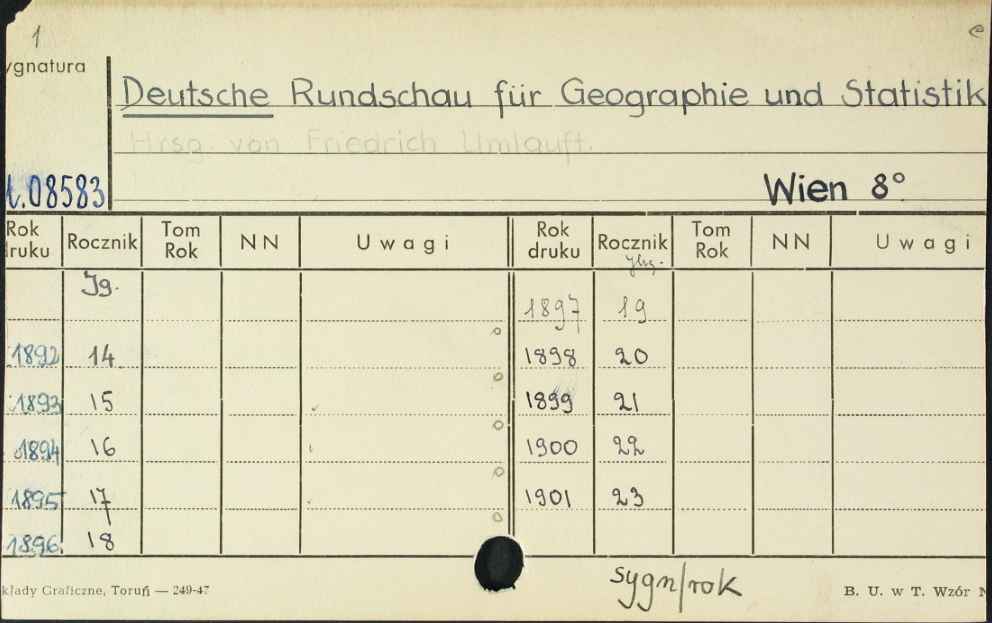 1
ygnatura
Deutsche Rundschau für Geographie und Statistik
Hrsg. von Friedrich Umlauft.
.08583
Wien 8°
Rok druku Rocznik Tom Rok NN Uwagi Rok druku Rocznik Tom Rok NN Uwagi
Jg. Jhg.
1897 19
1892 14 1898 20
1893 15 1899 21
1894 16 1900 22
1895 17 1901 23
1896 18
sygn/rok
kłady Graficzne, Toruń — 249-47 B. U. w T. Wzór N